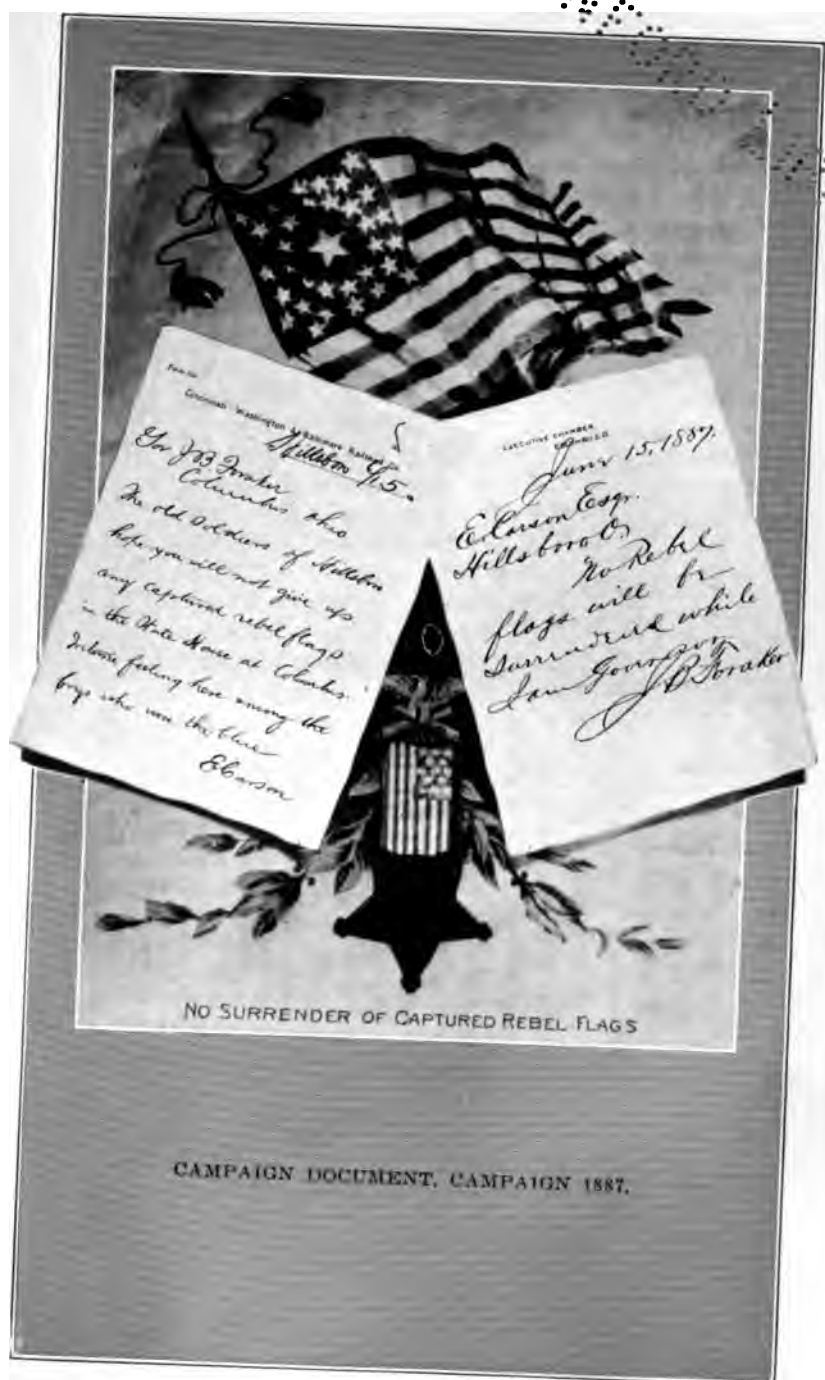 Cincinnati Washington & Baltimore Railroad
Hillsboro 6/15
Gov J B Foraker
Columbus Ohio
The old Soldiers of Hillsboro
hope you will not give up
any captured rebel flags
in the State House at Columbus.
Intense feeling here among the
boys who wore the blue
E Carson
EXECUTIVE CHAMBER
COLUMBUS
June 15, 1887.
E. Carson Esq.
Hillsboro O.
No Rebel
flags will be
surrendered while
I am Governor
J B Foraker
NO SURRENDER OF CAPTURED REBEL FLAGS
CAMPAIGN DOCUMENT, CAMPAIGN 1887.